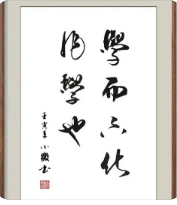 學而不化
非學也
壬寅 小 書